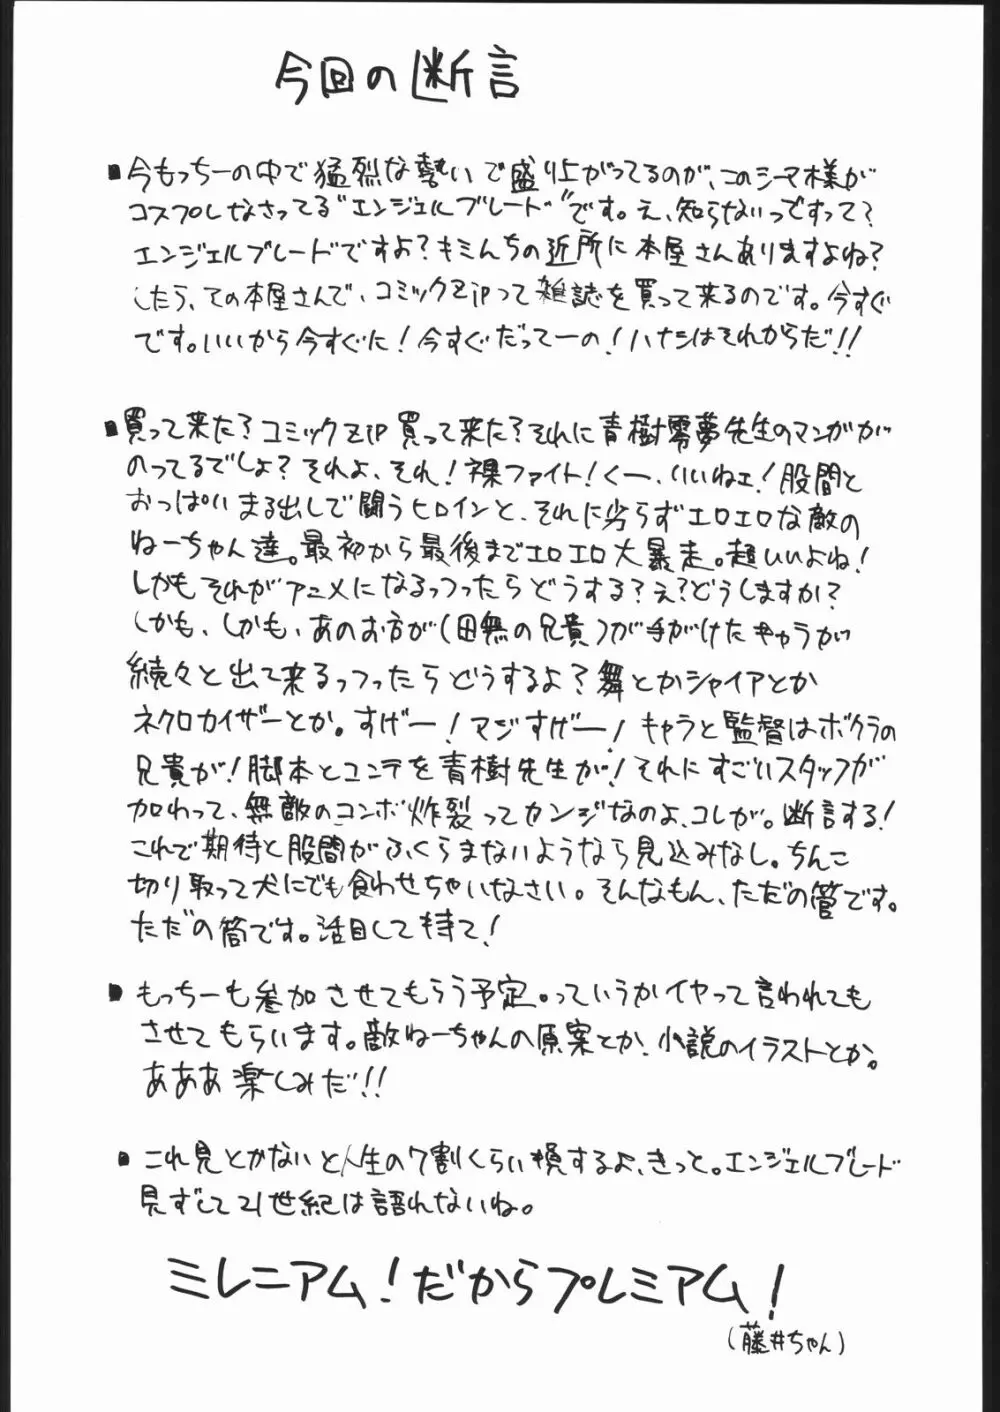 今回の断言
■今もっちーの中で猛烈な勢いで盛り上がってるのが、このシーマ様が
コスプレしなさってる"エンジェルブレード"です。え、知らないっですって？
エンジェルブレードですよ？キミんちの近所に本屋さんありますよね？
したら、その本屋さんで、コミックZipって雑誌を買って来るのです。今すぐ
です。いいから今すぐに！今すぐだってーの！ハナシはそれからだ!!
■買って来た？コミックZip買って来た？それに青樹零夢先生のマンガが
のってるでしょ？それよ、それ！裸ファイト！くー、いいねェ！股間と
おっぱいまる出しで闘うヒロインと、それに劣らずエロエロな敵の
ねーちゃん達。最初から最後までエロエロ大暴走。超いいよね！
しかもそれがアニメになるっつったらどうする？え？どうしますか？
しかも、しかも、あのお方が(田無の兄貴)が手がけたキャラが
続々と出て来るっつったらどうするよ？舞とかシャイアとか
ネクロカイザーとか。すげー！マジすげー！キャラと監督はボクラの
兄貴が！脚本とコンテを青樹先生が！それにすごいスタッフが
加わって、無敵のコンボ炸裂ってカンジなのよ、コレが。断言する！
これで期待と股間がふくらまないようなら見込みなし。ちんこ
切り取って犬にでも食わせちゃいなさい。そんなもん、ただの管です。
ただの筒です。活目して待て！
■もっちーも参加させてもらう予定。っていうかイヤって言われても
させてもらいます。敵ねーちゃんの原案とか、小説のイラストとか。
あああ楽しみだ!!
■これ見とかないと人生の7割くらい損するよ、きっと。エンジェルブレード
見ずして21世紀は語れないね。
ミレニアム！だからプレミアム！
(藤井ちゃん)